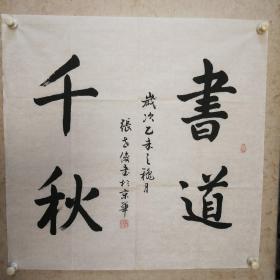 書道
歲次乙未之穐月
張俊書於京華
千秋